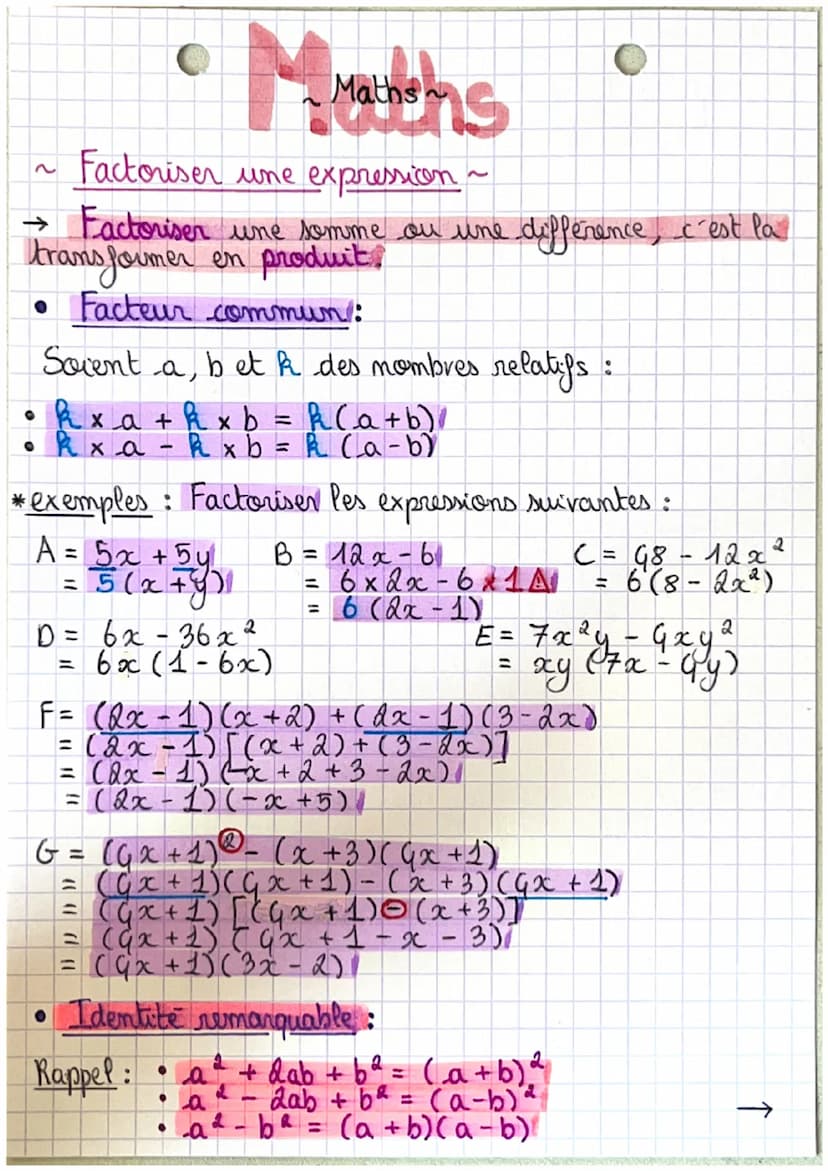 Maths
~ Maths ~
~ Factoriser une expression ~
→ Factoriser une somme ou une différence, c'est la
transformer en produit.
• Facteur commun :
Soient a, b et k des nombres relatifs :
• k x a + k x b = k(a+b)
• k x a - k x b = k (a-b)
* exemples : Factoriser les expressions suivantes :
A = 5x + 5y B = 12x - 6 C = 48 - 12x²
= 5(x+y) = 6 x 2x - 6 x 1 ⚠ = 6(8 - 2x²)
= 6 (2x - 1)
D = 6x - 36x² E = 7x²y - 4xy²
= 6x (1 - 6x) = xy (7x - 4y)
F = (2x - 1)(x+2) + (2x - 1)(3 - 2x)
= (2x - 1) [(x + 2) + (3 - 2x)]
= (2x - 1) (x + 2 + 3 - 2x)
= (2x - 1)(-x + 5)
G = (4x + 1)² - (x + 3)(4x + 1)
= (4x + 1)(4x + 1) - (x + 3)(4x + 1)
= (4x + 1) [(4x + 1) - (x + 3)]
= (4x + 1) (4x + 1 - x - 3)
= (4x + 1)(3x - 2)
• Identité remarquable :
Rappel : • a² + 2ab + b² = (a+b)²
• a² - 2ab + b² = (a-b)²
• a² - b² = (a+b)(a-b)
→